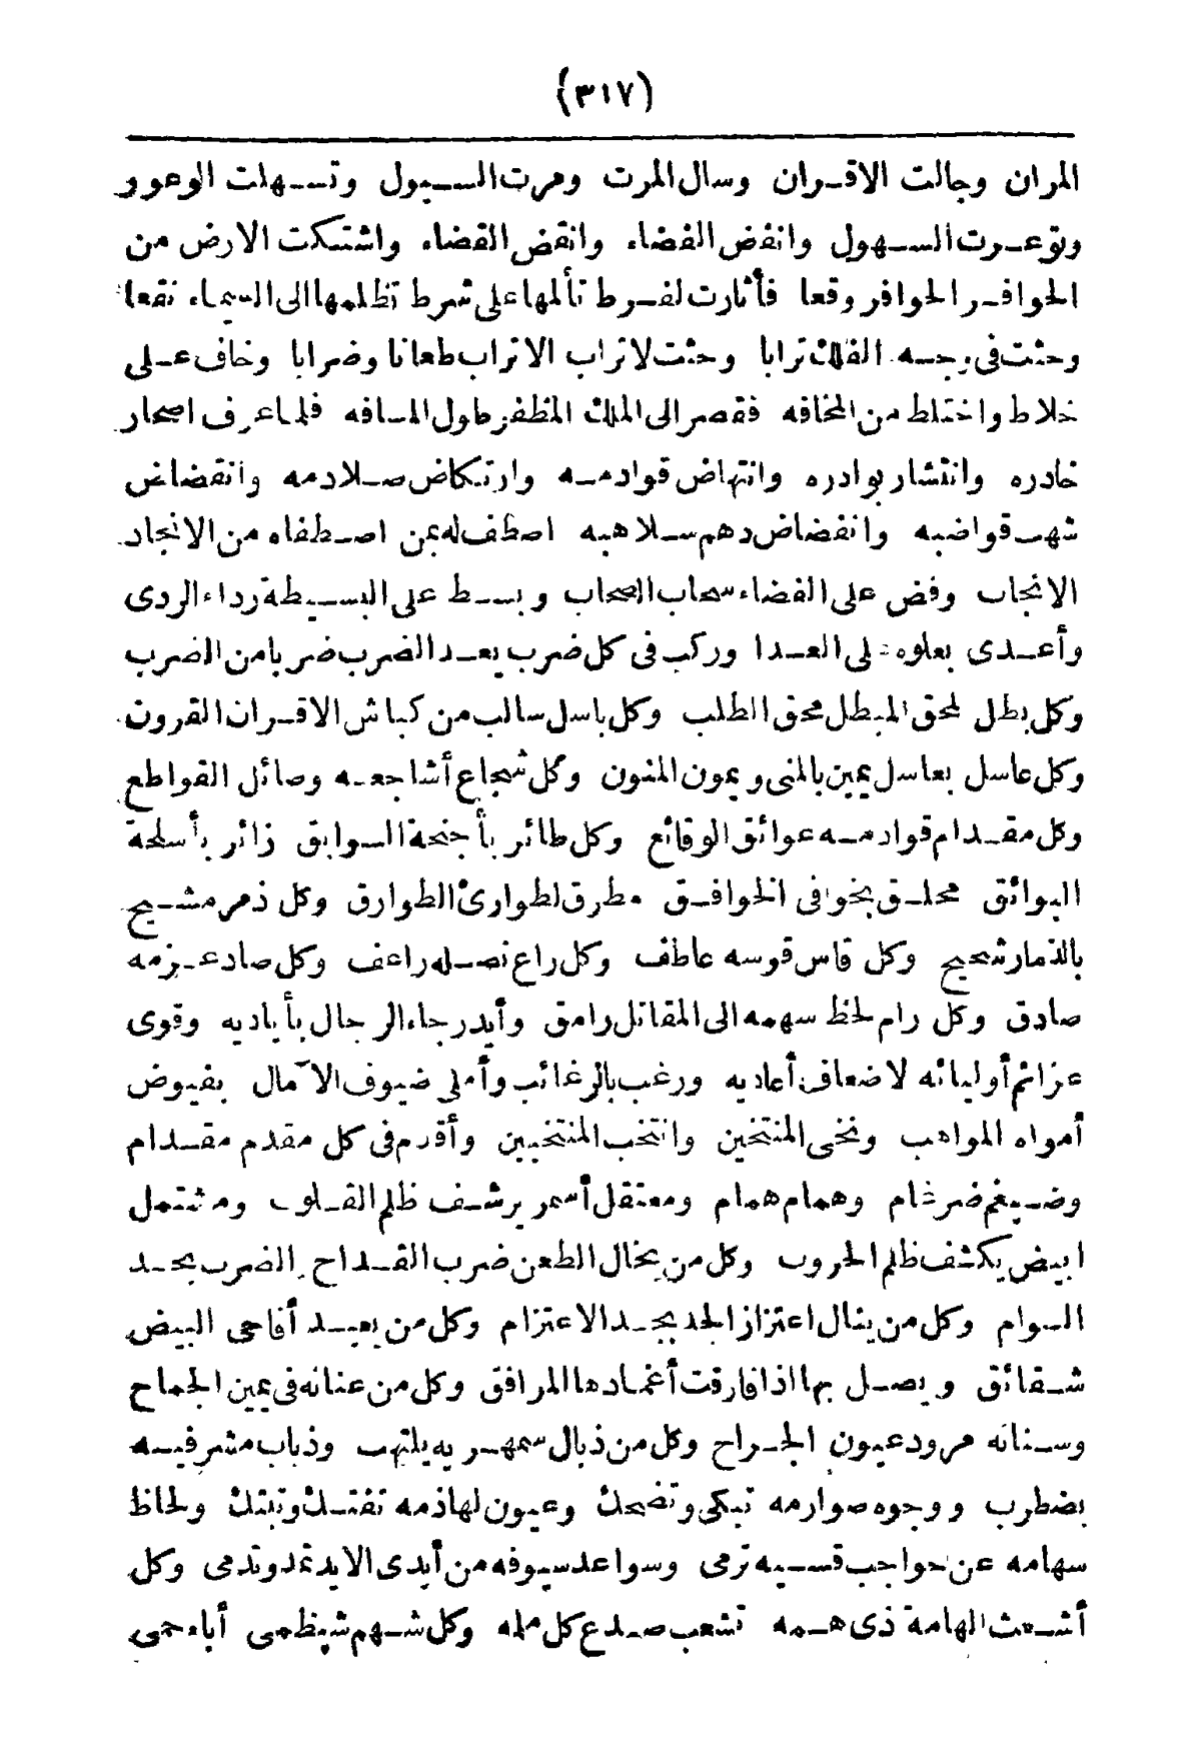 (٣١٧)
المران وجالت الاقران وسال المرت ومرت السيول وتسهلت الوعور
وتوعرت السهول وانفض الفضاء وانقض القضاء واشتكت الارض من
الحوافر الحوافر وقعا فأثارت لفرط تألمها على شرط تظلمها الى السماء نقعا
وحثت فى وجه الفلك ترابا وحثت لاتراب الاتراب طعانا وضرابا وخاف على
خلاط واختلط من المخافه فقصر الى الملك المظفر طول المسافه فلما عرف اصحار
خادره وانتشار بوادره وانتهاض قوادمه وارتكاض صلادمه وانقضاض
شهب قواضبه وانفضاض دهم سلاهبه اصطف له بمن اصطفاه من الانجاد
الانجاب وفض على الفضاء سحاب الصحاب وبسط على البسيطة رداء الردى
وأعدى بعلوه على العدا وركب فى كل ضرب يعد الضرب ضربا من الضرب
وكل بطل لمحق المبطل محق الطلب وكل باسل سالب من كباش الاقران القرون
وكل عاسل بعاسل يمين بالمنى ويمون المنون وكل شجاع أشاجعه وصائل القواطع
وكل مقدام قوادمه عوائق الوقائع وكل طائر بأجنحة السوابق زائر بأسلحة
البوائق محلق بخوافى الخوافق مطرق لطوارئ الطوارق وكل ذمر مشيح
بالذمار شحيح وكل قاس قوسه عاطف وكل راع نصله راعف وكل صاد عزمه
صادق وكل رام لحظ سهمه الى المقاتل رامق وأيد رجاء الرجال بأياديه وقوى
عزائم أوليائه لاضعاف أعاديه ورغب بالرغائب وأملى ضيوف الآمال بفيوض
أمواه المواهب ونخى المنتخين وانتخب المنتخبين وأقدم فى كل مقدم مقدام
وضيغم ضرغام وهمام همام ومعتقل أسمر يرشف ظلم القلوب ومشتمل
ابيض يكشف ظلم الحروب وكل من يخال الطعن ضرب القداح الضرب بحد
السوام وكل من ينال اعتزاز الجد بجد الاعتزام وكل من يعيد أقاحى البيض
شقائق ويصل بها اذا فارقت أغمادها المرافق وكل من عنانه فى يمين الجماح
وسنانه مرود عيون الجراح وكل من ذبال سمهريه يلتهب وذباب مشرفيه
يضطرب ووجوه صوارمه تبكى وتضحك وعيون لهاذمه تفتك وتبتك ولحاظ
سهامه عن حواجب قسيه ترمى وسواعد سيوفه من أيدى الايد تمد وتدمى وكل
أشعث الهامة ذى همه تشعب صدع كل ملمه وكل شهم شيظمى أباء حمى